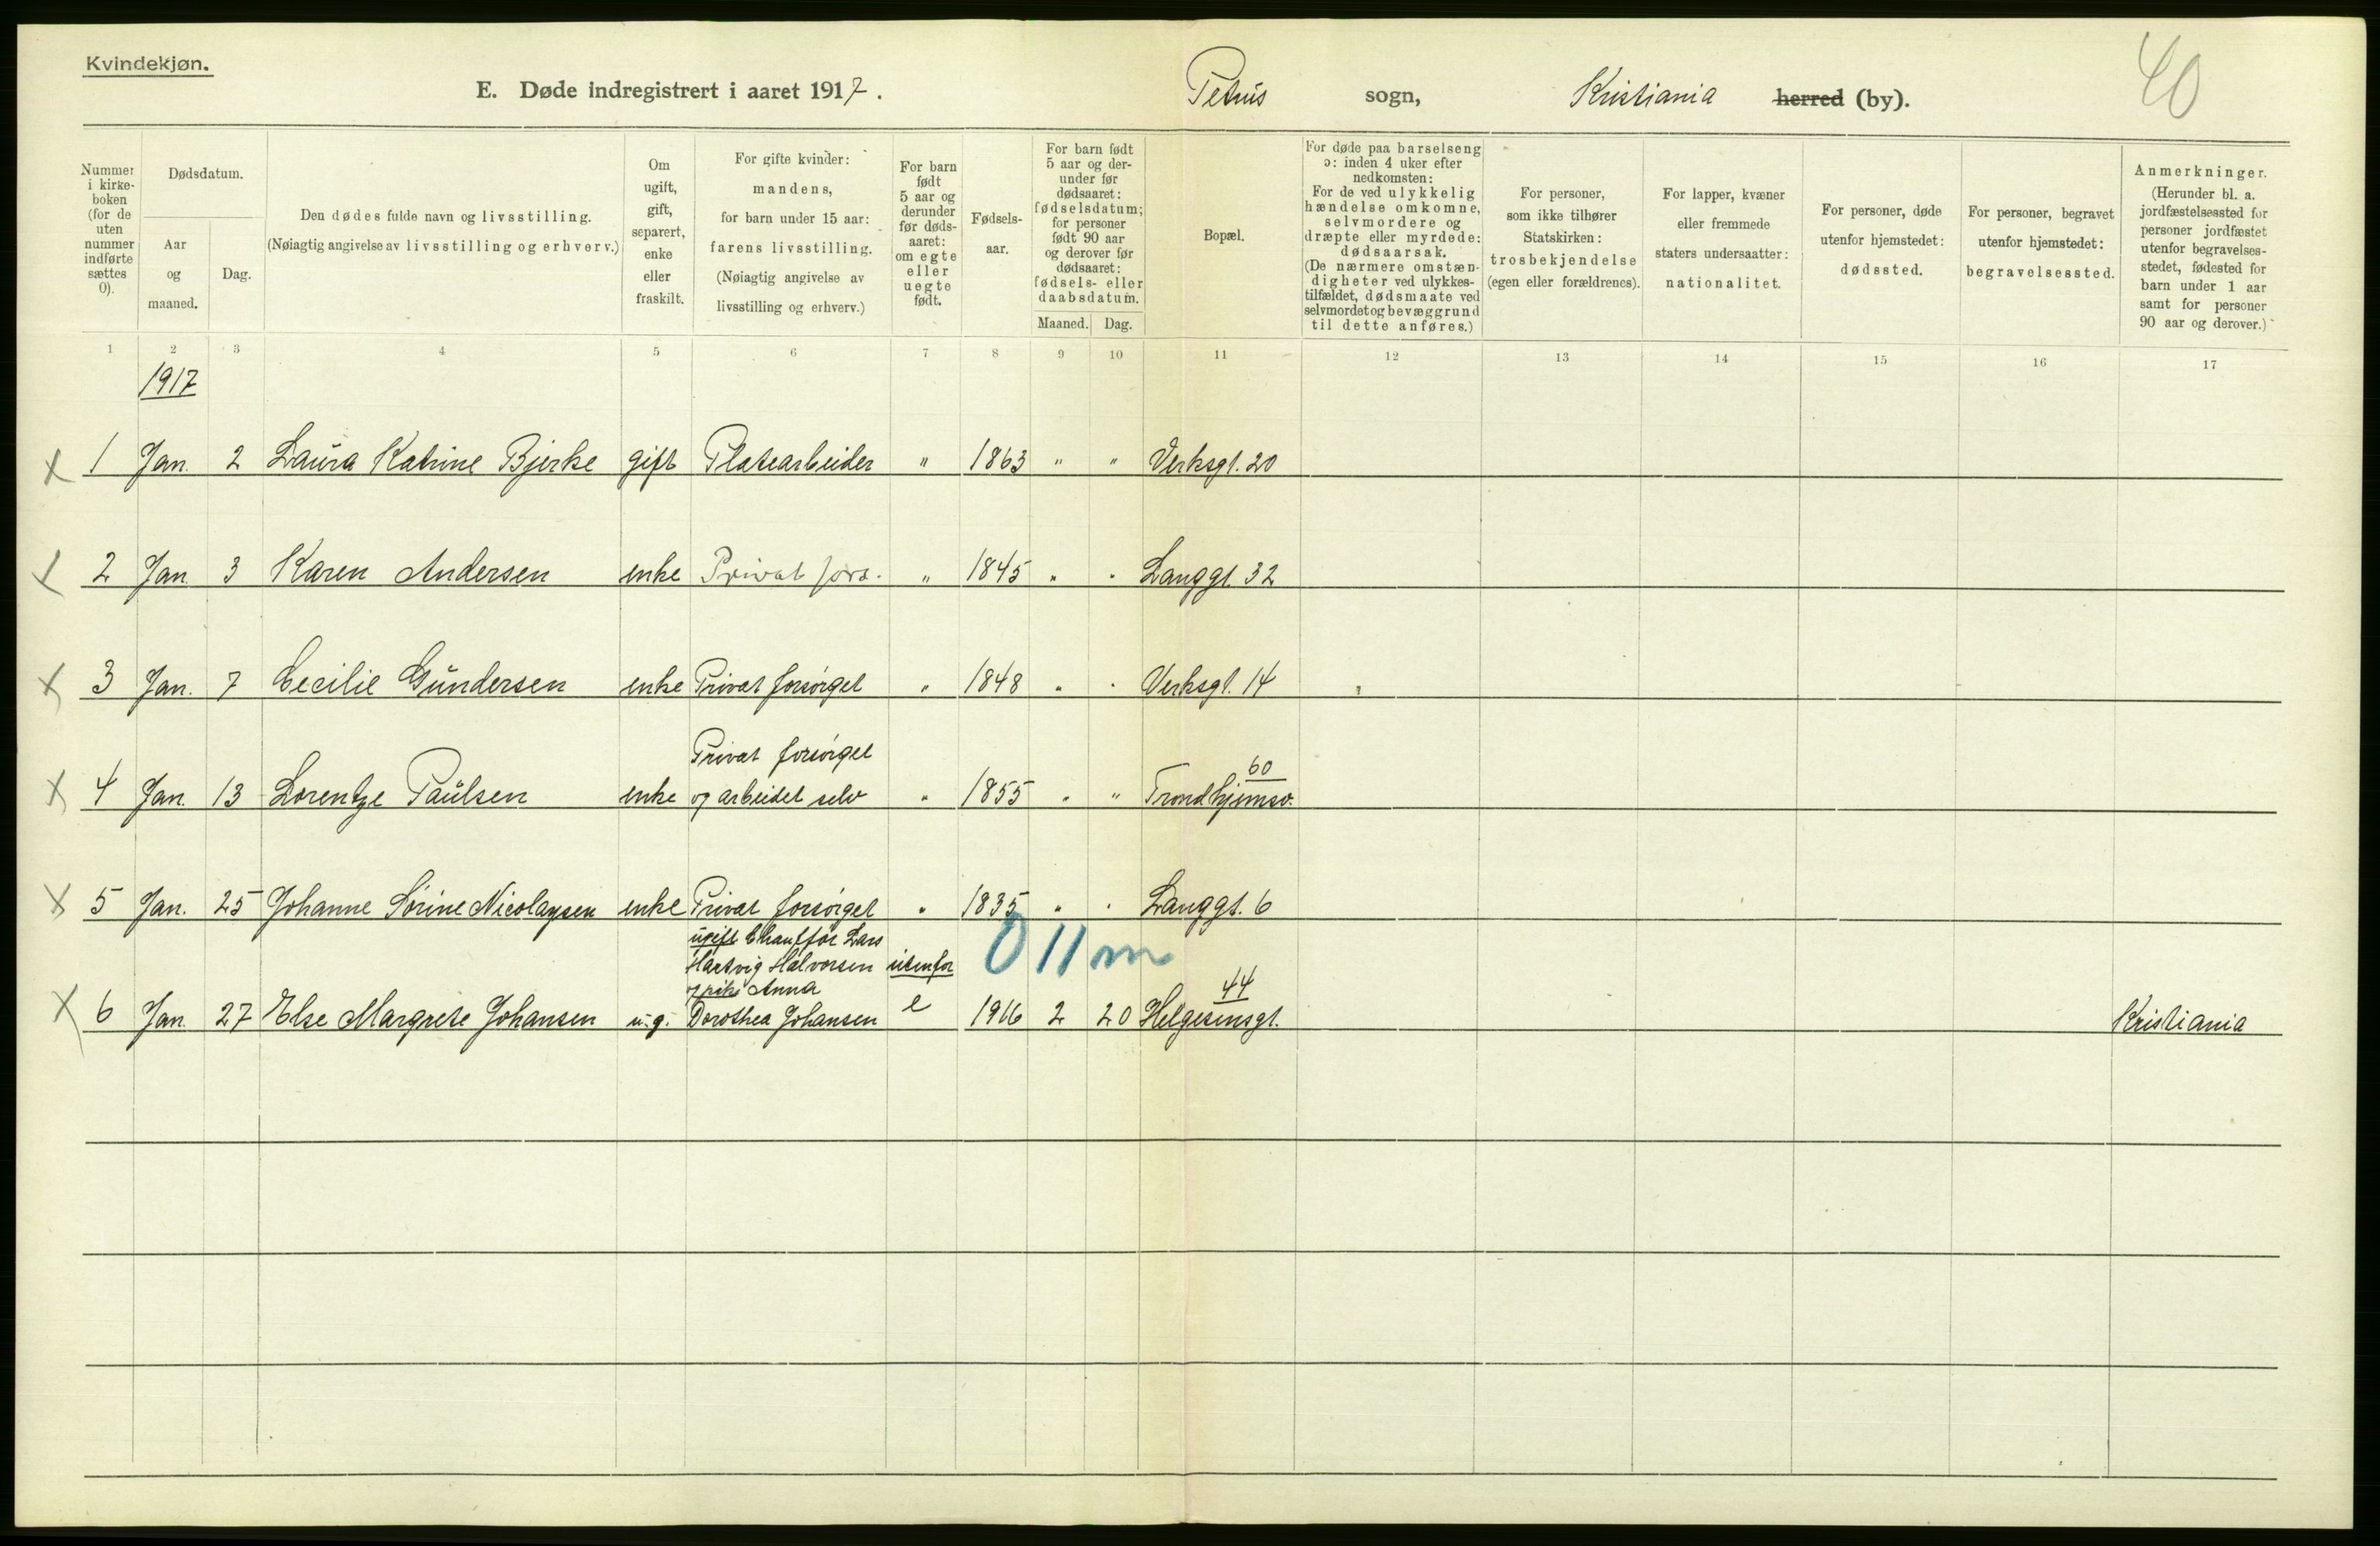 Kvindekjøn.
E. Døde indregistrert i aaret 1917. Petrus sogn, Kristiania herred (by).
40
Nummer i kirke-boken (for de uten nummer indførte sættes 0).
Dødsdatum.
Aar og maaned.
Dag.
Den dødes fulde navn og livsstilling.
(Nøiagtig angivelse av livsstilling og erhverv.)
Om ugift, gift, separert, enke eller fraskilt.
For gifte kvinder:
mandens,
for barn under 15 aar:
farens livsstilling.
(Nøiagtig angivelse av
livsstilling og erhverv.)
For barn født 5 aar og derunder før døds-aaret: om egte eller uegte født.
Fødsels-aar.
For barn født 5 aar og der-under før dødsaaret: fødselsdatum; for personer født 90 aar og derover før dødsaaret: fødsels- eller daabsdatum.
Maaned. Dag.
Bopæl.
For døde paa barselseng
ɔ: inden 4 uker efter
nedkomsten:
For de ved ulykkelig
hændelse omkomne,
selvmordere og
dræpte eller myrdede:
dødsaarsak.
(De nærmere omstæn-
digheter ved ulykkes-
tilfældet, dødsmaate ved
selvmordet og bevæggrund
til dette anføres.)
For personer,
som ikke tilhører
Statskirken:
trosbekjendelse
(egen eller forældrenes).
For lapper, kvæner
eller fremmede
staters undersaatter:
nationalitet.
For personer, døde
utenfor hjemstedet:
dødssted.
For personer, begravet
utenfor hjemstedet:
begravelsessted.
Anmerkninger.
(Herunder bl. a.
jordfæstelsessted for
personer jordfæstet
utenfor begravelses-
stedet, fødested for
barn under 1 aar
samt for personer
90 aar og derover.)
1 2 3 4 5 6 7 8 9 10 11 12 13 14 15 16 17
1917
x 1 Jan. 2 Laura Katrine Bjerke gift Platearbeider " 1863 " " Verksgt. 20
x 2 Jan 3 Karen Andersen enke Privat fors. " 1845 " " Langgt. 32
x 3 Jan. 7 Cecilie Gundersen enke Privat forsørget " 1848 " " Verksgt. 14
Privat forsørget 60
x 4 Jan. 13 Lorentze Paulsen enke og arbeidet selv " 1855 " " Trondhjemsv.
x 5 Jan. 25 Johanne Sørine Nicolaysen enke Privat forsørget " 1835 " " Langgt. 6
ugift Chauffør Lars 0 11 m
Hartvig Halvorsen utenfor
og pike Anna 44
x 6 Jan. 27 Else Margrete Johansen u.g. Dorothea Johansen e 1916 2 20 Helgesensgt. Kristiania